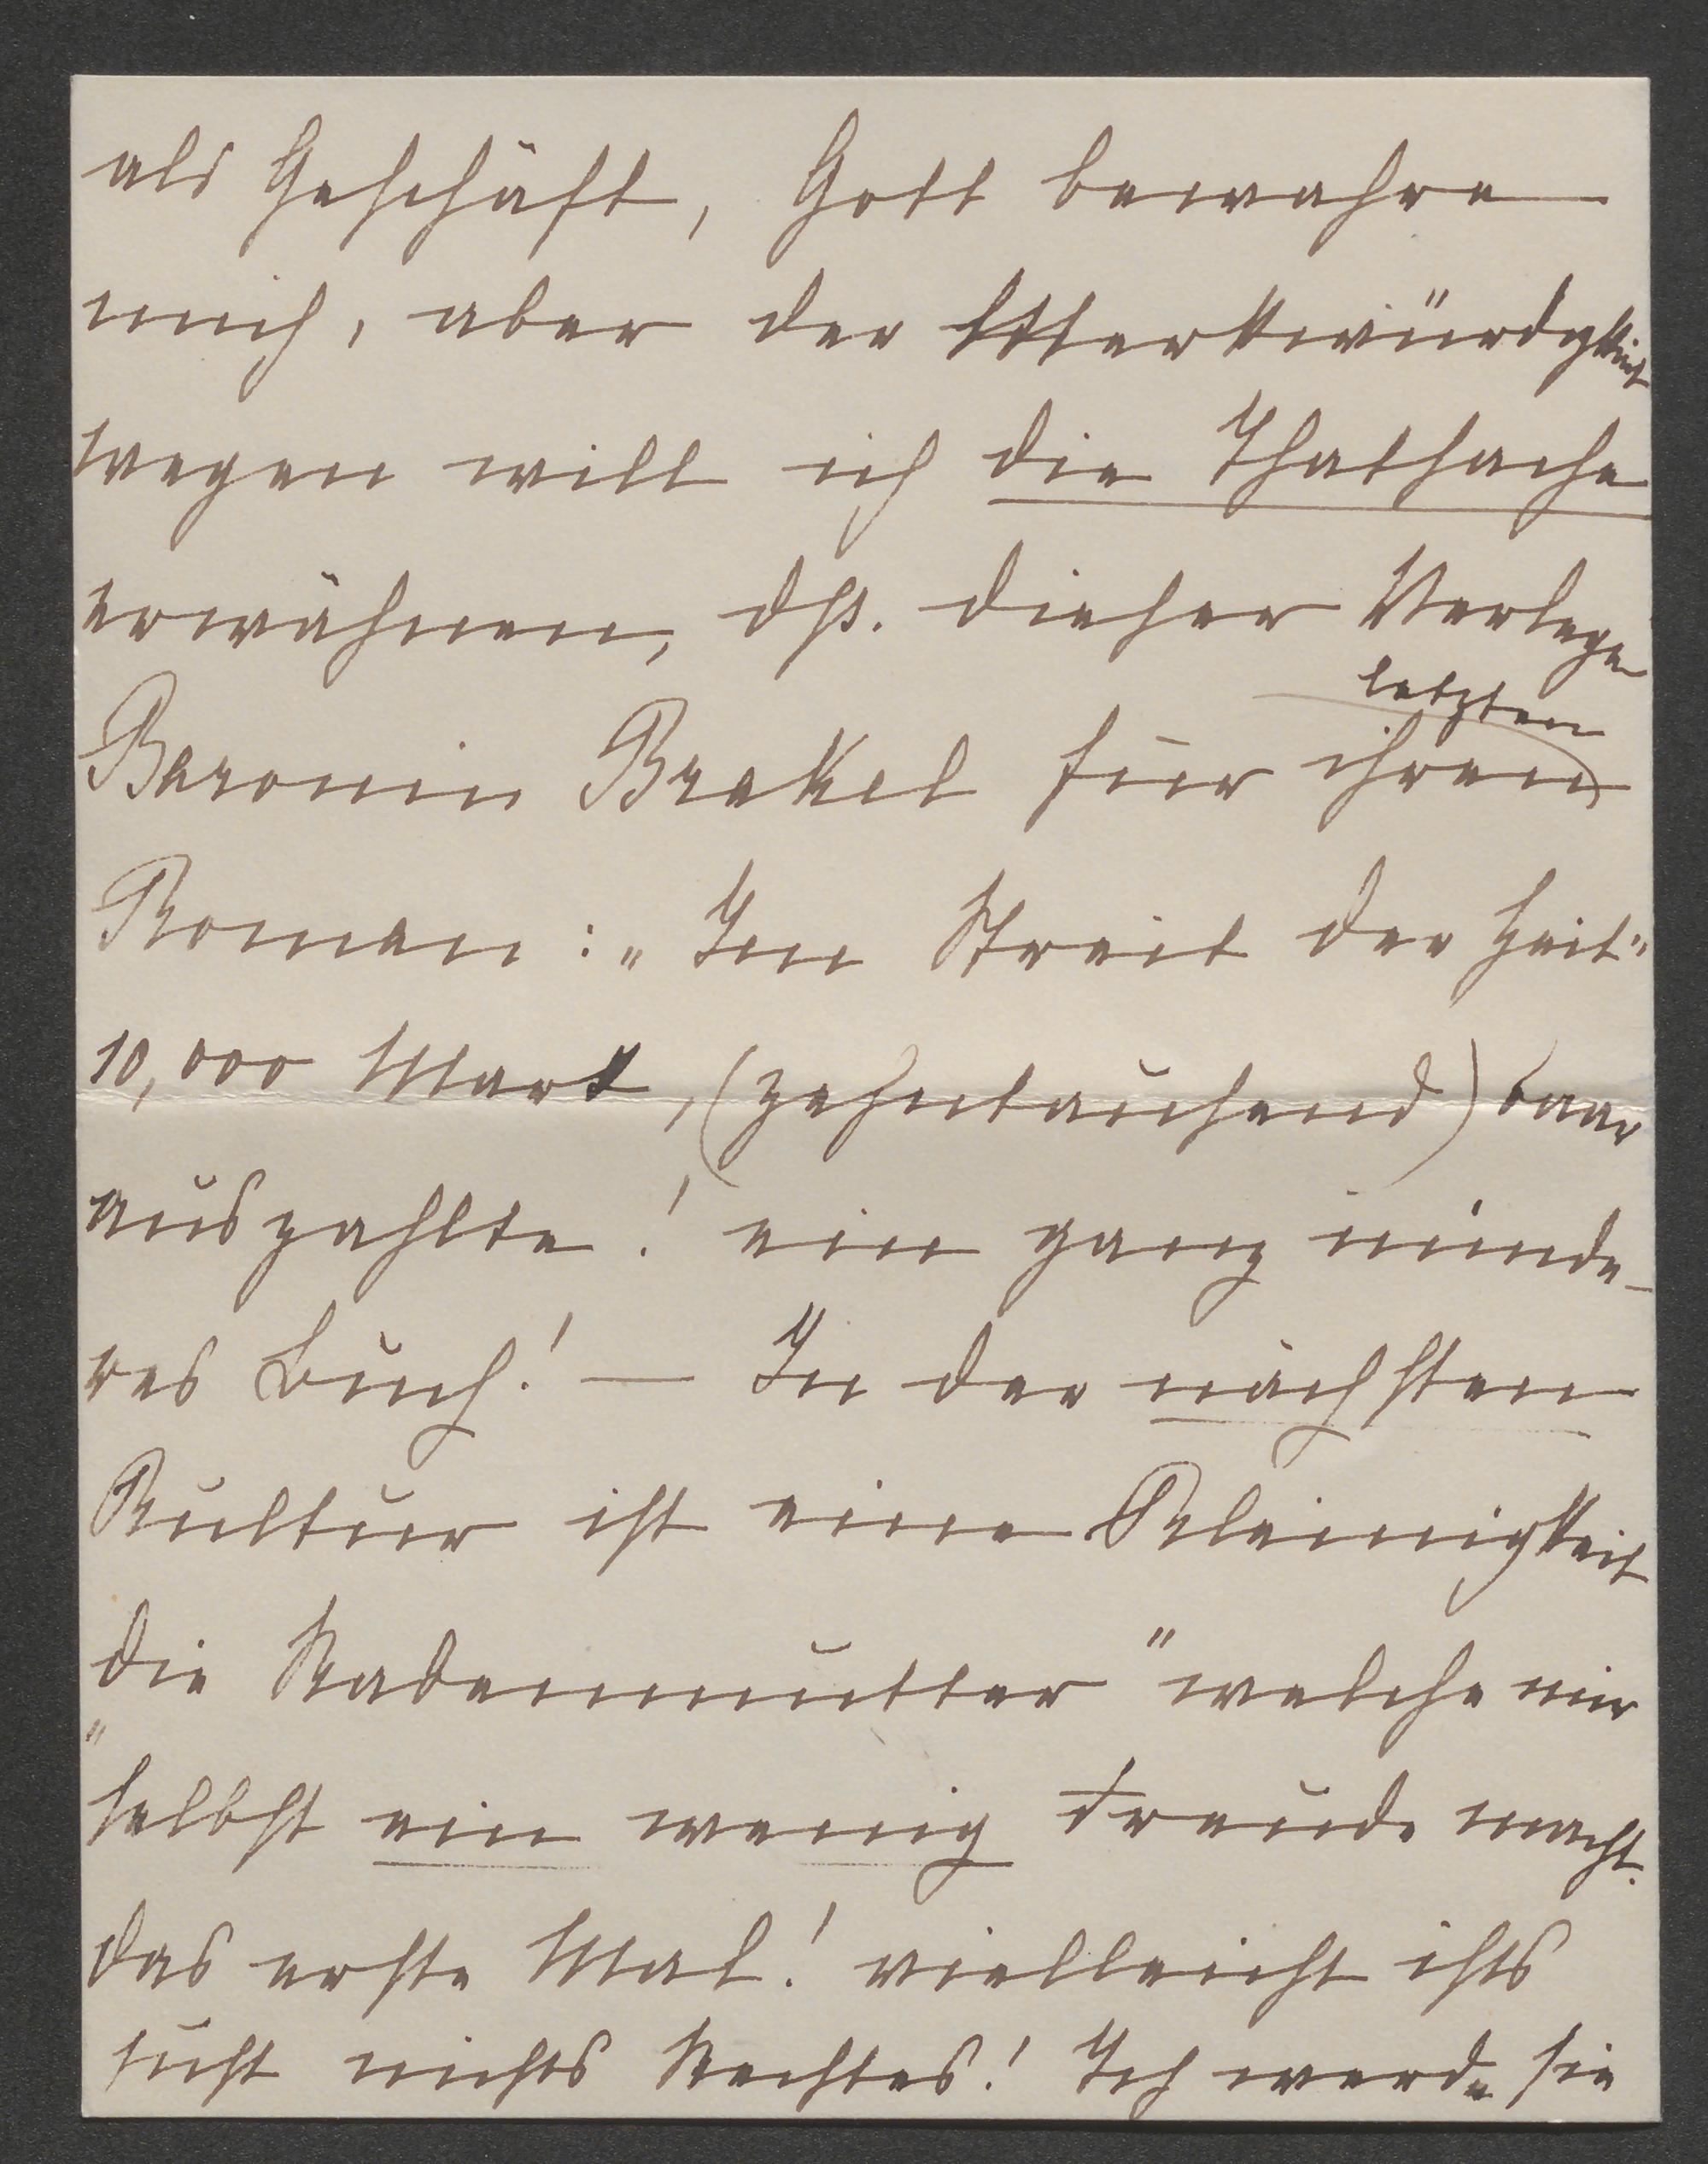 als Geschäft, Gott bewahre
mich, aber der Merkwürdigkeit
wegen will ich die Thatsache
erwähnen, dß. dieser Verlege
letzten
Baronin Brakel für ihren
Roman: „Im Streit der Zeit"
10,000 Mark, (zehntausend) baar
auszahlte! ein ganz minde-
res Buch! — In der nächsten
Kultur ist eine Kleinigkeit
„die Rabenmutter" welche mir
selbst ein wenig Freude macht.
das erste Mal! vielleicht ists
just nichts Rechtes! Ich werde sie